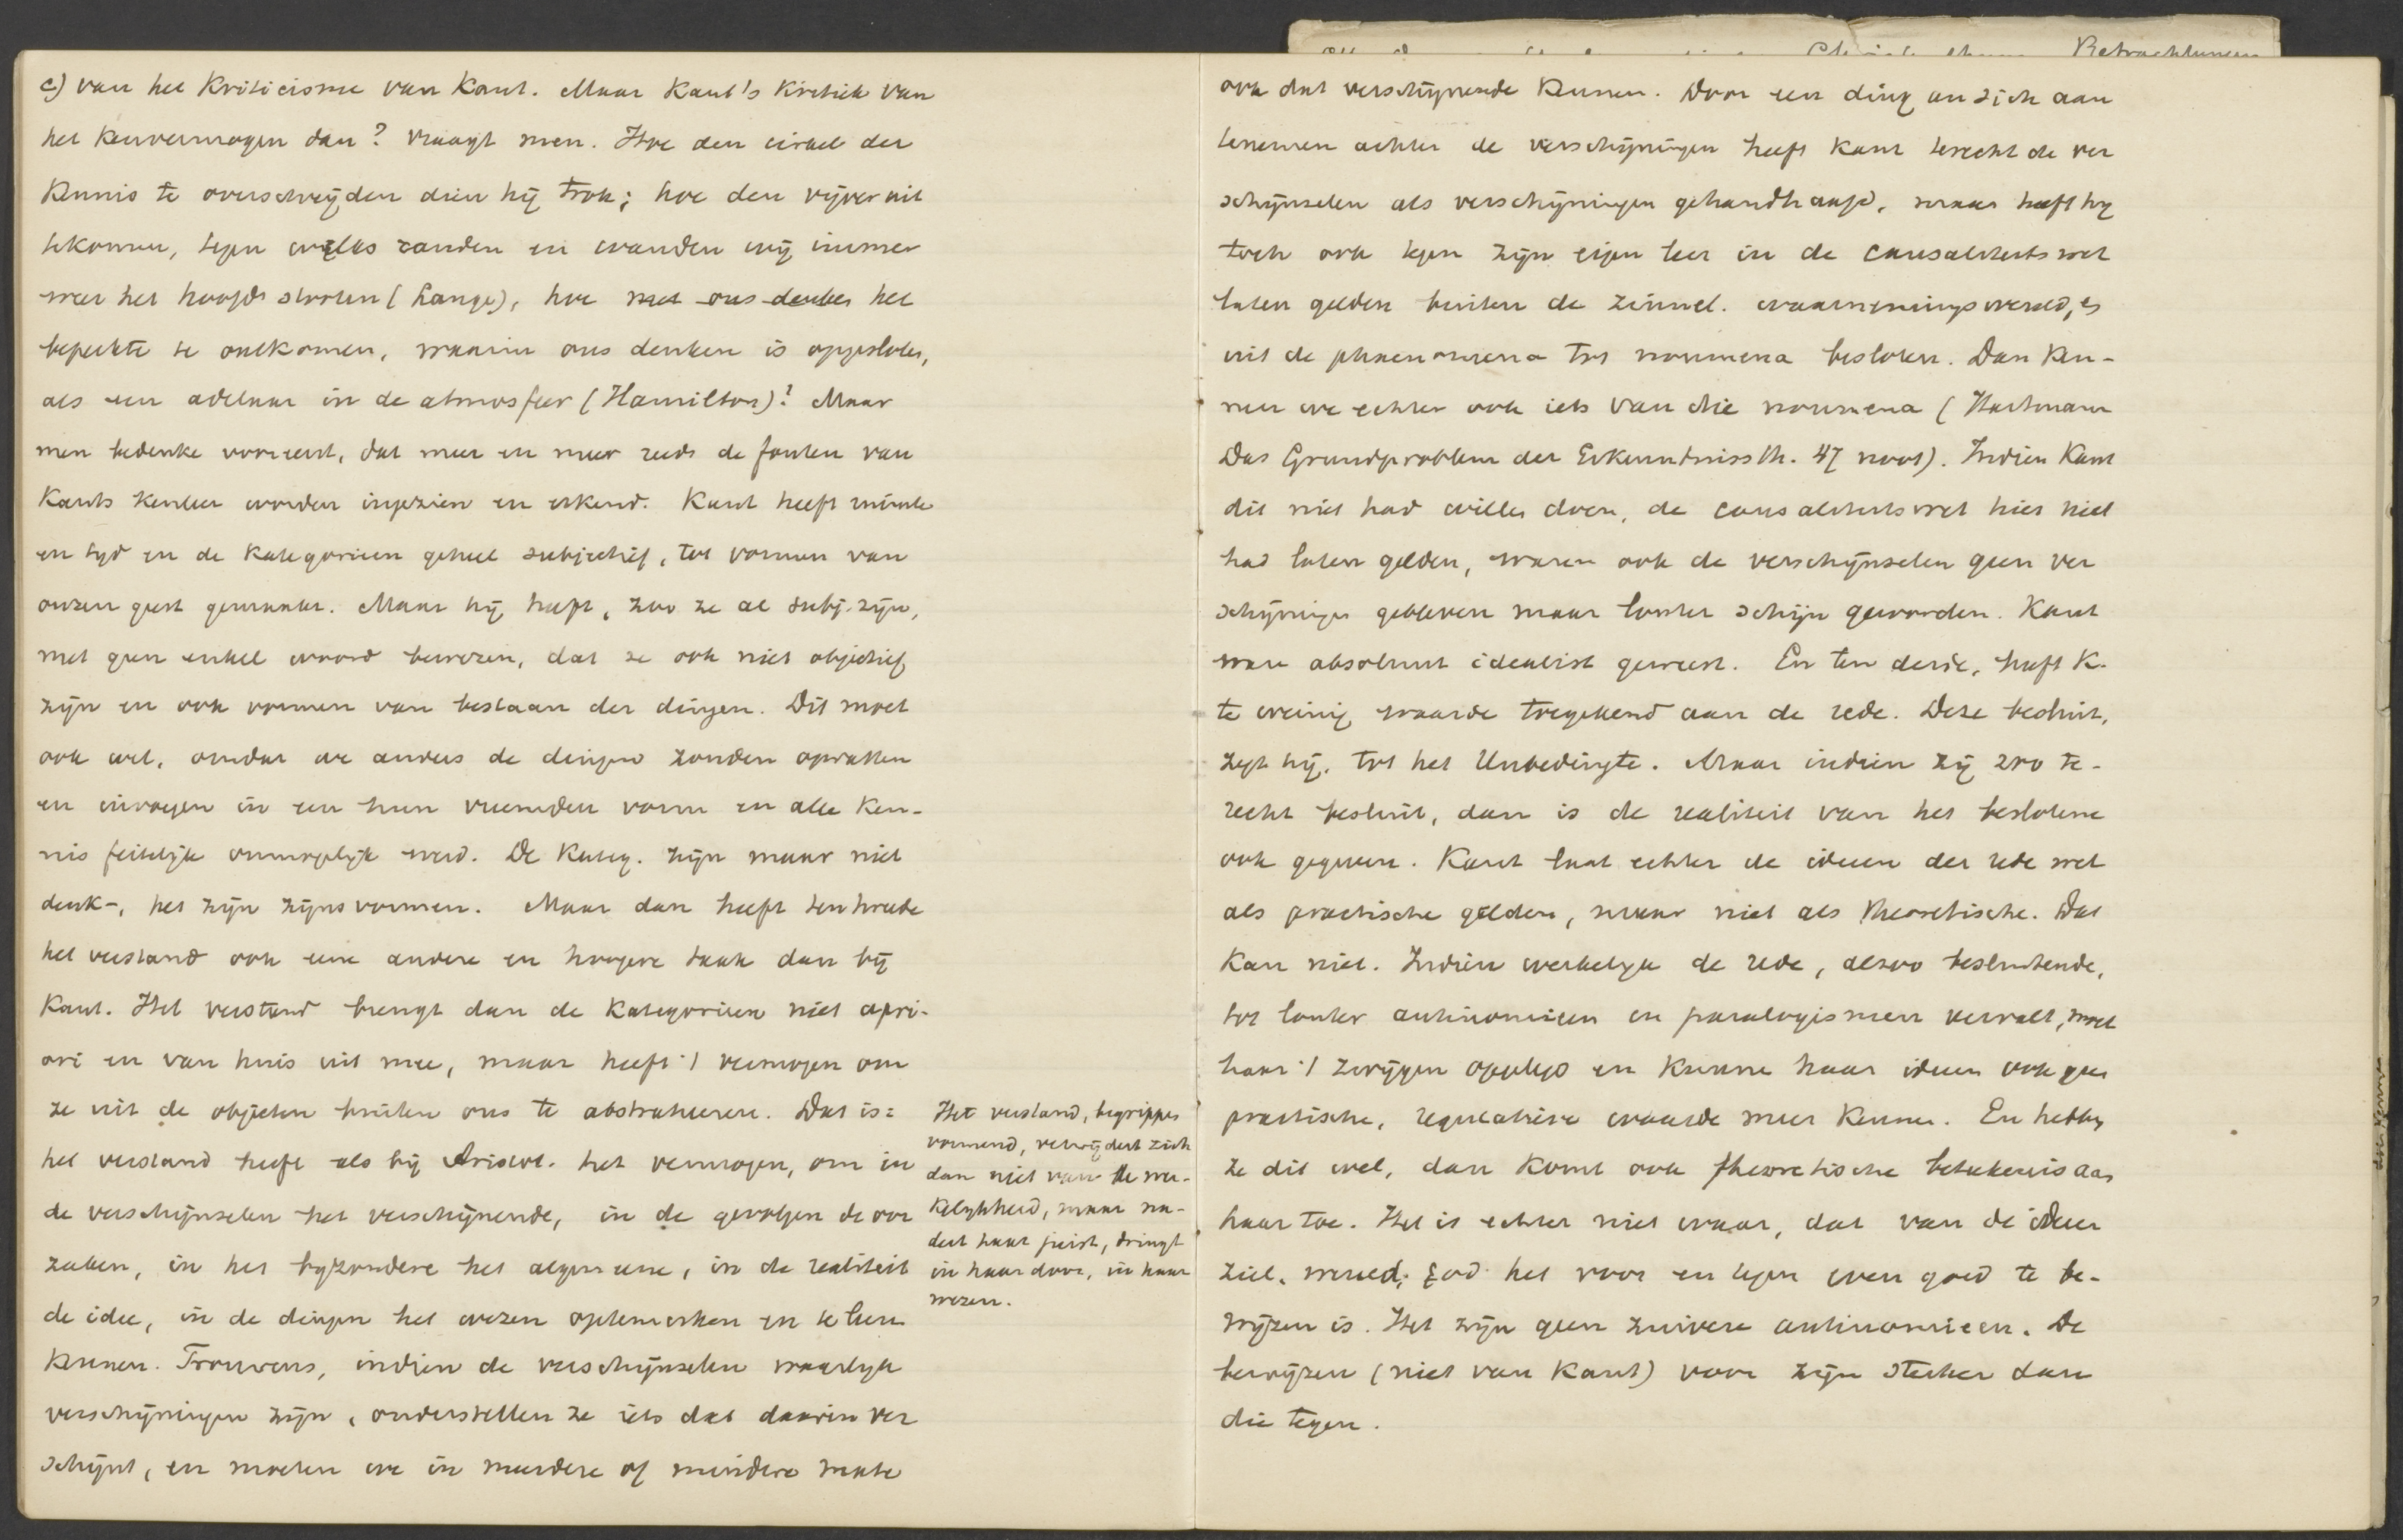 c) van het Kriticisme van Kant. Maar Kant's Kritiek van
het kenvermogen dan? vraagt men. Hoe den cirkel der
kennis te overschrijden dien hij trok; hoe den vijver uit
tekomen, tegen welks randen en wanden wij immer
weer het hoofd stooten (Lange), hoe met ons denken het
beperkte te ontkomen, waarin ons denken is opgesloten,
als een adelaar in de atmosfeer (Hamilton)? Maar
men bedenke vooreerst, dat meer en meer reeds de fouten van
Kants kenleer worden ingezien en erkend. Kant heeft ruimte
en tyd en de kategorieen geheel subjectief, tot vormen van
onzen geest gemaakt. Maar hij heeft, zoo ze al subj. zijn,
met geen enkel woord bewezen, dat ze ook niet objectief
zijn en ook vormen van bestaan der dingen. Dit moet
ook wel, omdat we anders de dingen zouden opvatten
en invoegen in een hun vreemden vorm en alle ken-
nis feitelijk onmogelijk werd. De Kateg. zijn maar niet
denk-, het zijn zijnsvormen. Maar dan heeft ten tweede
het verstand ook eene andere en hoogere taak dan bij
Kant. Het verstand brengt dan de kategorieen niet apri-
ori en van huis uit mee, maar heeft 't vermogen om
ze uit de objecten buiten ons te abstraheeren. Dat is:
het verstand heeft als bij Aristot. het vermogen, om in
de verschijnselen het verschijnende, in de gevolgen de oor
zaken, in het byzondere het algemeene, in de realiteit
de idee, in de dingen het wezen optemerken en te leeren
kennen. Trouwens, indien de verschijnselen waarlyk
verschijningen zijn, onderstellen ze iets dat daarin ver
schijnt, en moeten we in meerdere of mindere mate
Het verstand, begrippen
vormend, verwijdert zich
dan niet van de wer-
kelykheid, maar na-
dert haar juist, dringt
in haar door, in haar
wezen.
ook dat verschijnende kennen. Door een ding an sich aan
tenemen achter de verschijningen heeft Kant terecht de ver
schijnselen als verschijningen gehandhaafd, maar heeft hy
toch ook tegen zijn eigen leer in de causaliteitswet
laten gelden buiten de zinnel. waarnemingswereld, en
uit de phaenomena tot noumena besloten. Dan ken-
nen we echter ook iets van die noumena (Hartmann
Das Grundproblem der Erkenntnissth. 47 noot). Indien Kant
dit niet had willen doen, de causaliteitswet hier niet
had laten gelden, waren ook de verschijnselen geen ver
schijningen gebleven maar louter schijn geworden. Kant
ware absoluut idealist geweest. En ten derde, heeft K.
te weinig waarde toegekend aan de rede. Deze besluit,
zegt hij, tot het Unbedingte. Maar indien zij zoo te-
recht besluit, dan is de realiteit van het beslotene
ook gegeven. Kant laat echter de ideeen der rede wel
als practische gelden, maar niet als theoretische. Dat
kan niet. Indien werkelyk de rede, alzoo besluitende,
tot louter antinomieen en paralogismen vervalt, moet
haar 't zwijgen opgelegd en kunnen haar ideeen ook geen
practische, regulatieve waarde meer kennen. En hebben
ze dit wel, dan komt ook theoretische beteekenis aan
haar toe. Het is echter niet waar, dat van de ideeen
ziel, wereld, God het voor en tegen even goed te be-
wijzen is. Het zijn geen zuivere antinomieen. De
bewijzen (niet van Kant) voor zijn sterker dan
die tegen.